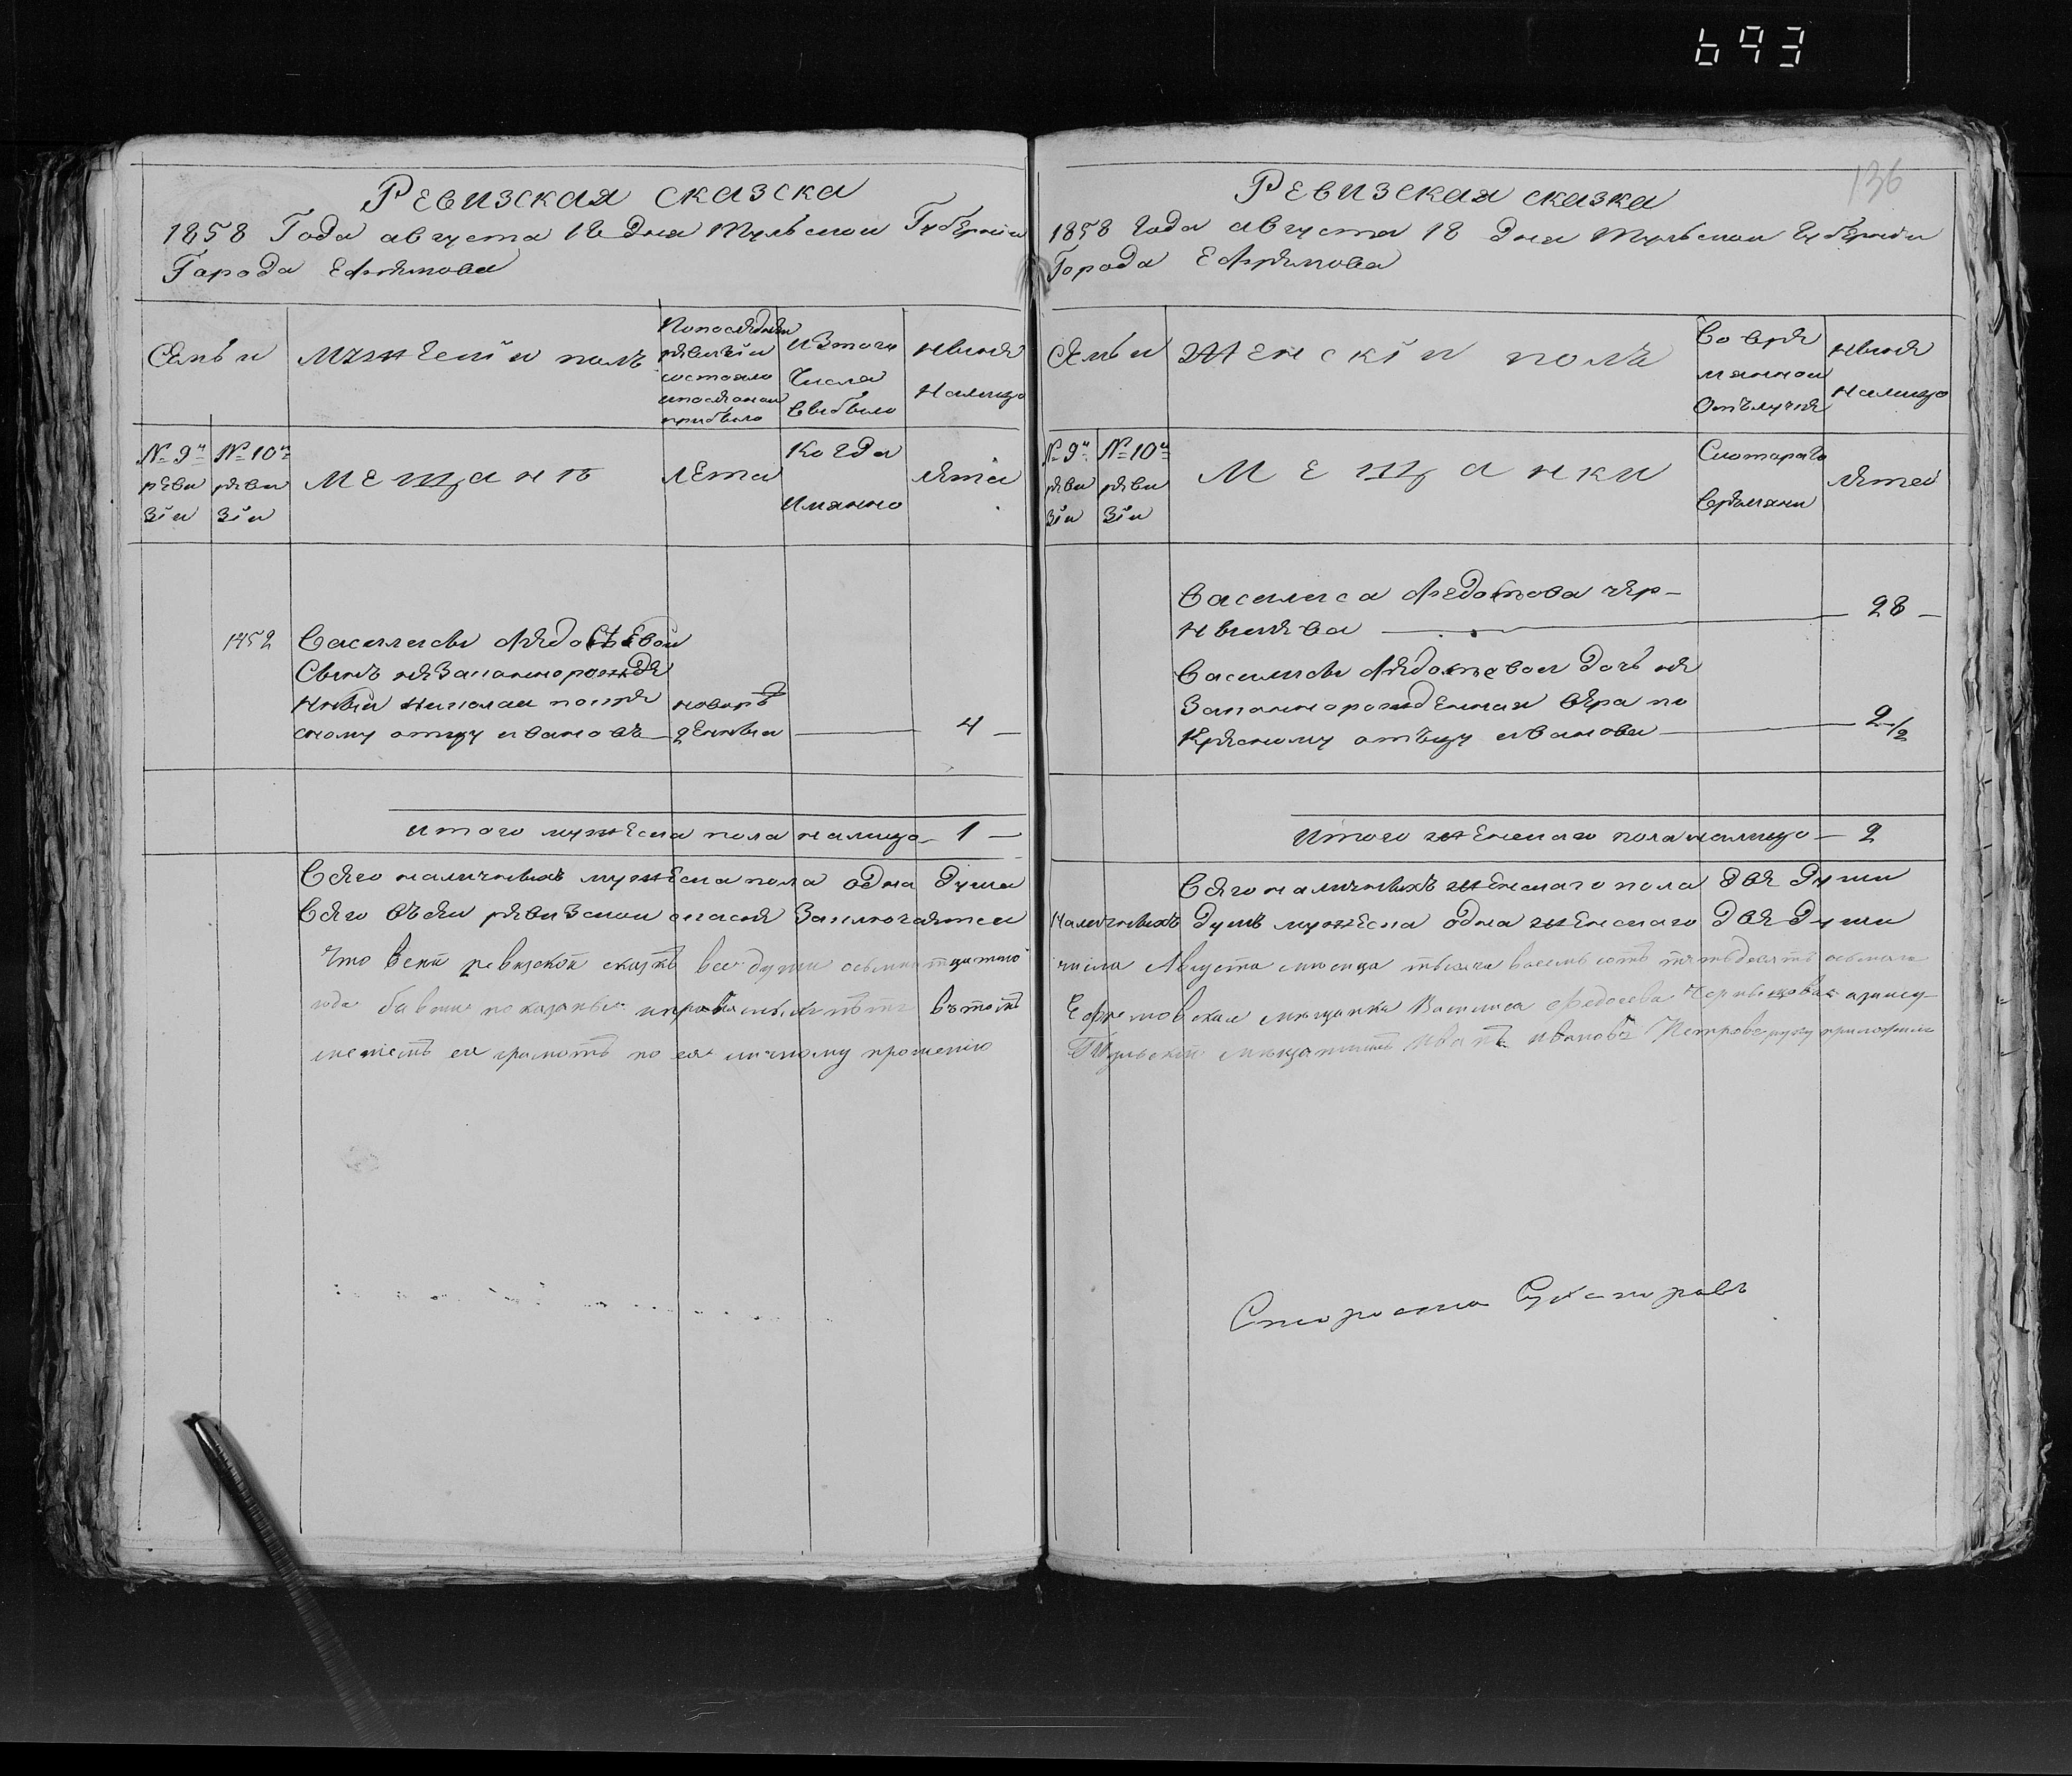 693
136
Ревизская сказска
1858 Года августа 18 Дня Тульскои Губернiи
Города Ефремова
Семьи
мужескiи полъ
Попоследнеи ревизiи состояло ипоследнеи прибыло
Изтого Числа выбыло
Ныне Налицо
№ 9й ревизiи
№ 10й ревизiи
мещанѣ
Лета
Когда Имянно
Лета
1452
Василисы Федосѣевои
Сынъ незаконнорожде
ныи Николаи покре
сному отцу ивановъ
новорж
денныи
4
итого мужеска пола налицо 1
Всего наличныхъ мужеска пола одна Душа
Всего въсеи ревизскои скаске Заключается
Что всей ревизской сказкѣ все души
показаны
ея грамотѣ по ея личному прошенiю
Ревизская сказка
1858 года августа 18 дня Тульскои Губернiи
Города Ефремова
Семьи
Женскiи полъ
Во времянной Отълучке
Ныне Налицо
№ 9й ревизiи
№ 10й ревизiи
Мещанки
Скотараго времяни
Летa
Василиса Федотова чер-
нышева
28
Василисы Федотевои дочь не
Законнорожденная Вера по
Кресному отъцу иванова
2 1/2
Итого женскаго пола налицо 2
Всего наличныхъ женскаго пола две Души
Наличныхъ Душъ мужеска одна женскаго Две Души
числа Августа месяца тысяча восемь сотъ пятьдесятъ осьмаго
Ефремовская мещанка Василиса Федосеева
Тульской мещанинъ Иванъ ивановъ Петровъ руку приложилъ
Староста